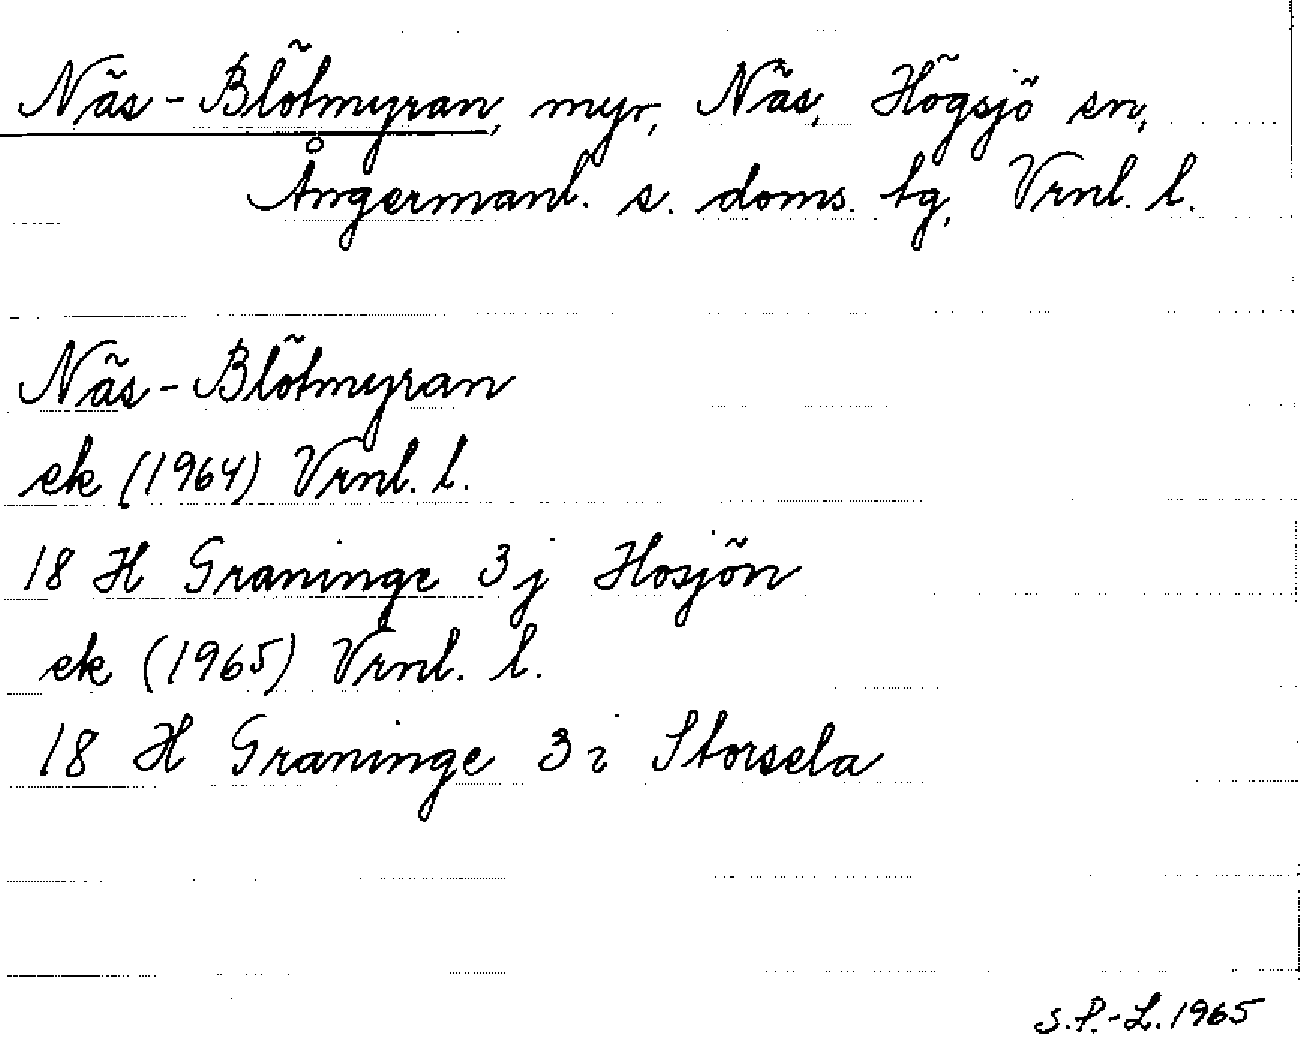 Näs-Blötmyran, myr, Näs, Högsjö sn,
Ångermanl. s. doms. tg, Vrnl. l.
Näs-Blötmyran
ek (1964) Vrnl. l.
18 H Graninge 3 j Hosjön
ek (1965) Vrnl. l.
18 H Graninge 3 i Storsela
S.P.-L. 1965